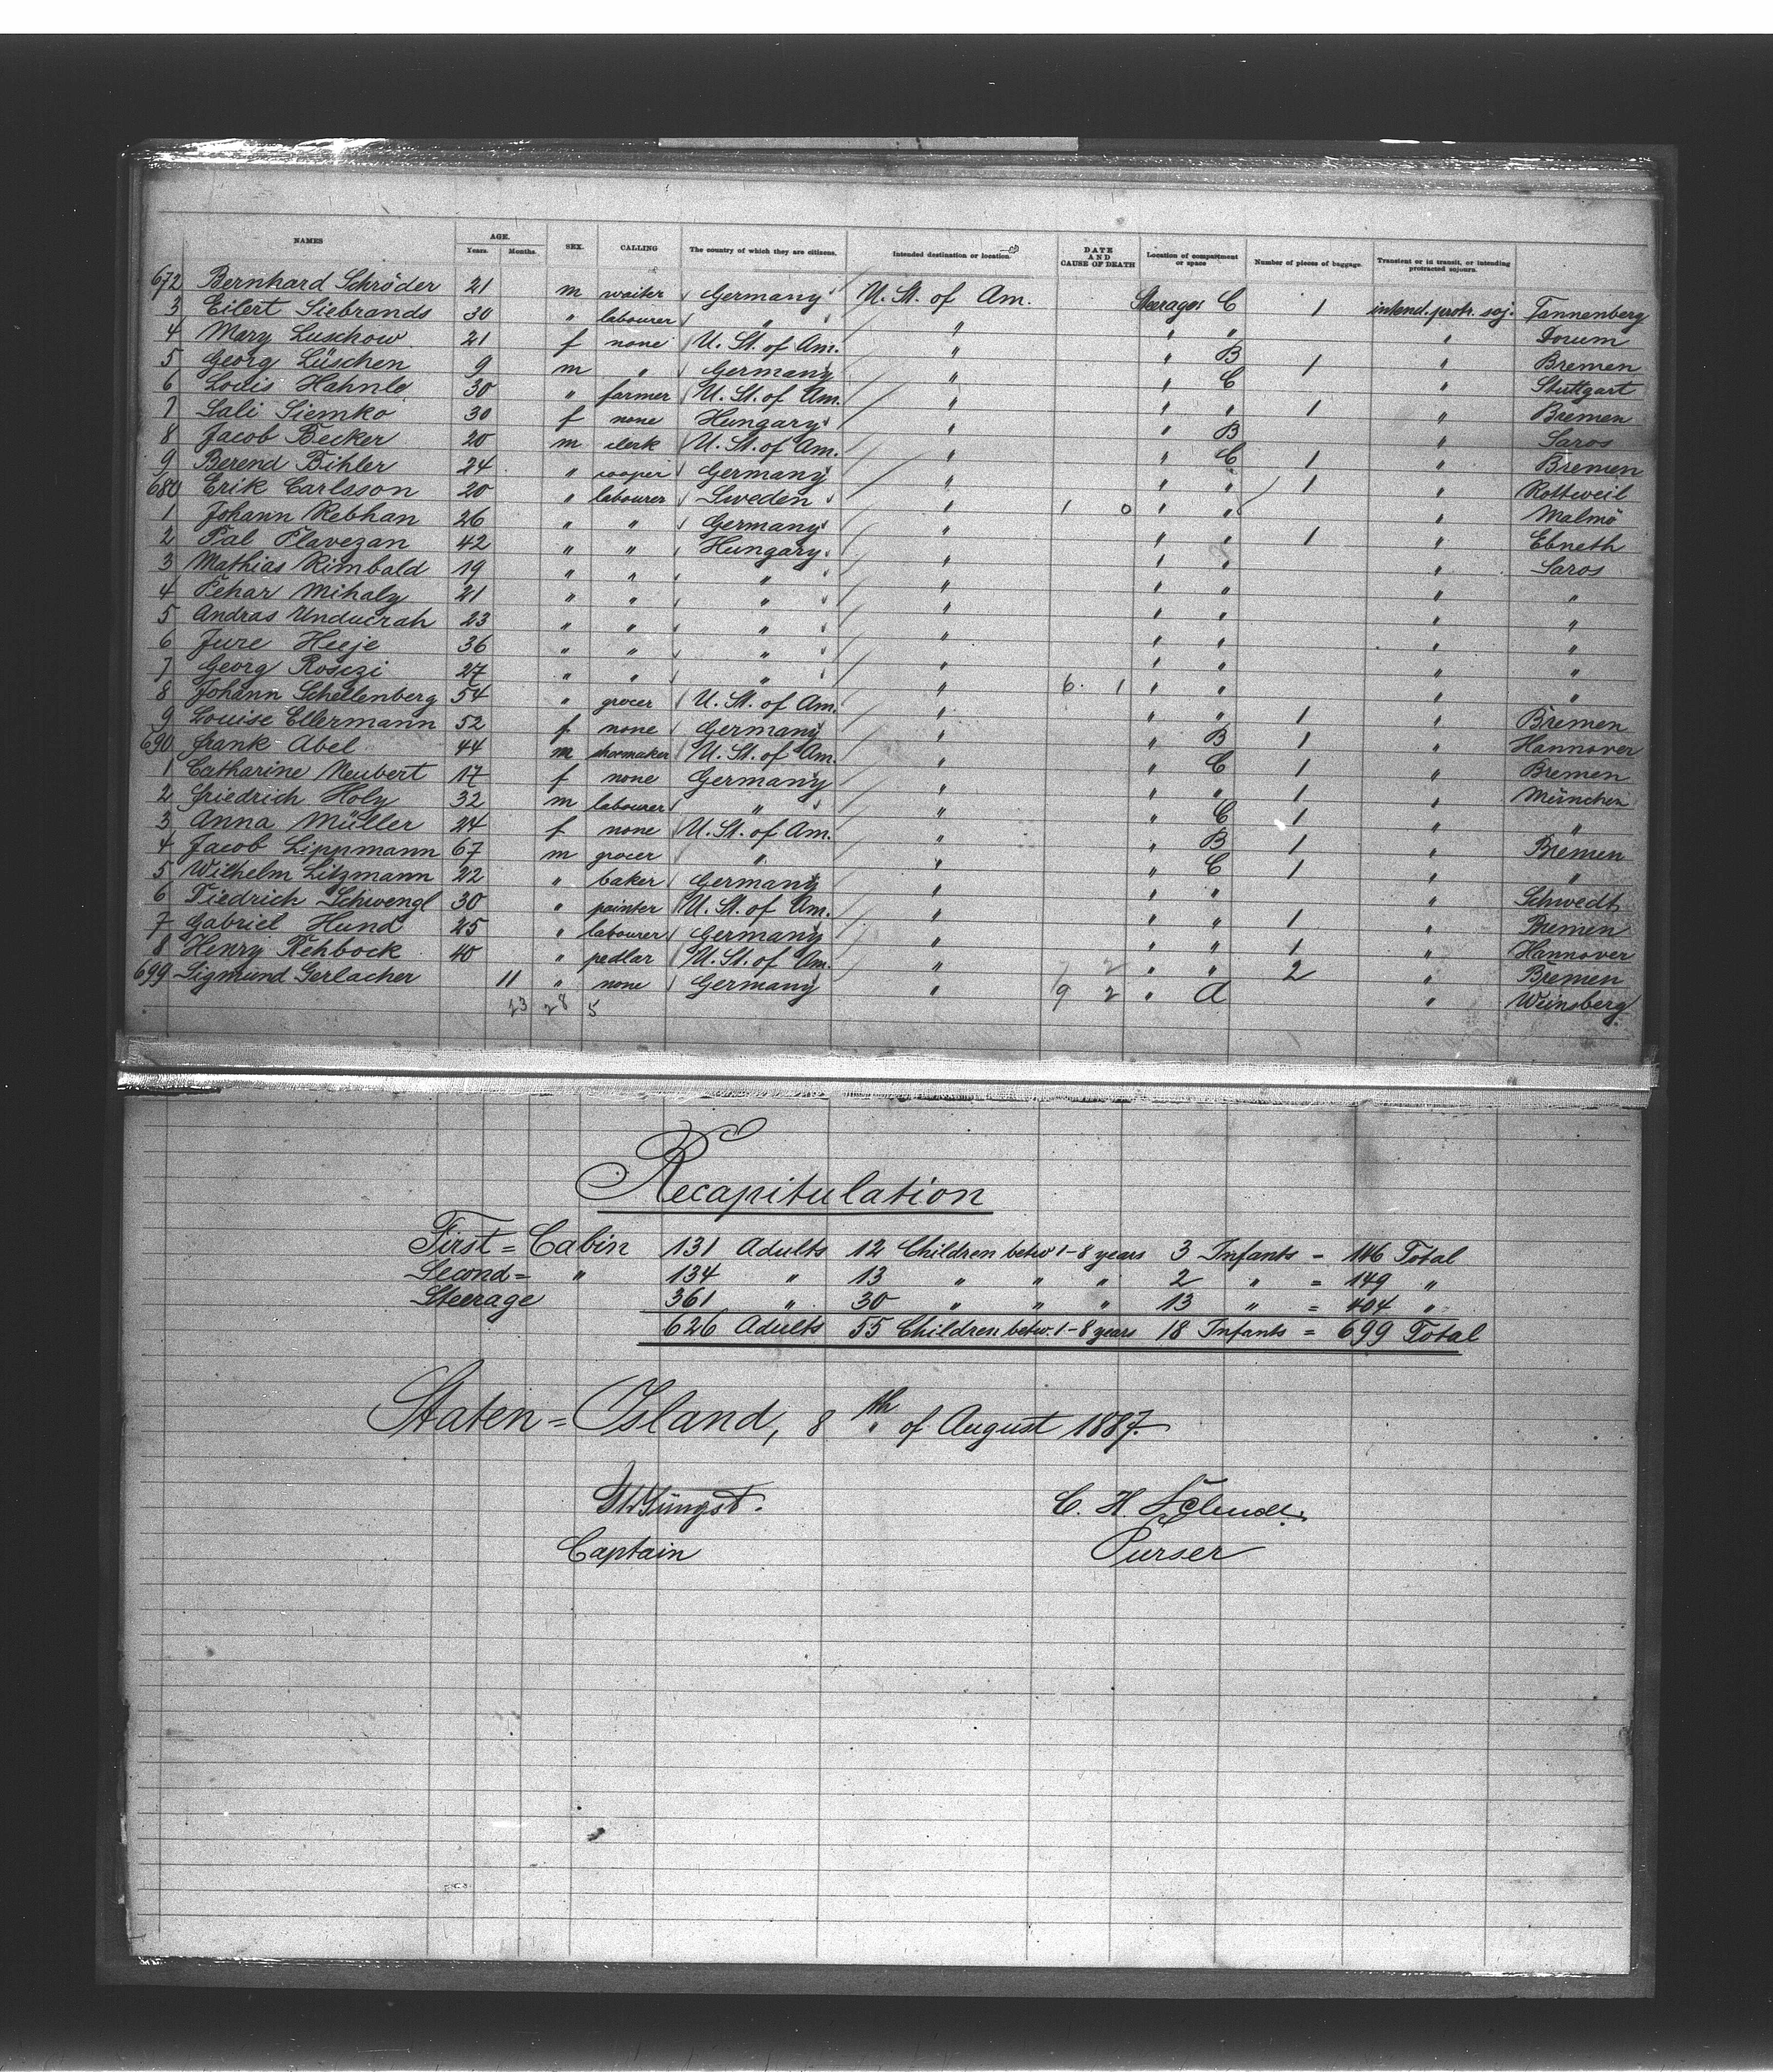 NAMES AGE. Years. Months. SEX. CALLING The country of which they are citizens. Intended destination or location DATE AND CAUSE OF DEATH Location of compartment or space Number of pieces of baggage. Transient or in transit, or intending protracted sojourn.
672 Bernhard Schröder 21 m waiter Germany U. St. of Am. Steerage C 1 intend. protr. soj. Tannenberg
3 Eilert Siebrands 30 " labourer " " " " " Dorum
4 Mary Luschow 21 f none U. St. of Am. " " B 1 " Bremen
5 Georg Lüschen 9 m " Germany " " C " Stuttgart
6 Louis Hahnle 30 " farmer U. St. of Am. " " " 1 " Bremen
7 Sali Siemko 30 f none Hungary " " B " Saros
8 Jacob Becker 20 m clerk U. St. of Am. " " C 1 " Bremen
9 Berend Bihler 24 " cooper Germany " " " 1 " Rottweil
680 Erik Carlsson 20 " labourer Sweden " 1 0 " " " Malmö
1 Johann Rebhan 26 " " Germany " " " 1 " Ebneth
2 Pal Plavezan 42 " " Hungary " " " " Saros
3 Mathias Rimbald 19 " " " " " " " "
4 Pehar Mihaly 21 " " " " " " " "
5 Andras Unducrah 23 " " " " " " " "
6 Jure Heeje 36 " " " " " " " "
7 Georg Rosczi 27 " " " " 6 1 " " " "
8 Johann Schellenberg 54 " grocer U. St. of Am. " " " 1 " Bremen
9 Louise Ellermann 52 f none Germany " " B 1 " Hannover
690 Frank Abel 44 m shoemaker U. St. of Am. " " C 1 " Bremen
1 Catharine Neubert 17 f none Germany " " " 1 " München
2 Friedrich Holy 32 m labourer " " " C 1 " "
3 Anna Müller 24 f none U. St. of Am. " " B 1 " Bremen
4 Jacob Lippmann 67 m grocer " " " C 1 " "
5 Wilhelm Litzmann 22 " baker Germany " " " " Schwedt
6 Tiedrich Schwengl 30 " painter U. St. of Am. " " " 1 " Bremen
7 Gabriel Hund 25 " labourer Germany " " " 1 " Hannover
8 Henry Rehbock 40 " pedlar U. St. of Am. " 7 2 " " 2 " Bremen
699 Sigmund Gerlacher 11 " none Germany " 9 2 " A " Weinsberg
23 28 5
Recapitulation
First = Cabin 131 Adults 12 Children betw 1-8 years 3 Infants = 146 Total
Second = " 134 " 13 " " " 2 " = 149 "
Steerage 361 " 30 " " " 13 " = 404 "
626 Adults 55 Children betw. 1-8 years 18 Infants = 699 Total
Staten = Island, 8 th of August 1887.
Jüngst. C. H.
Captain Purser